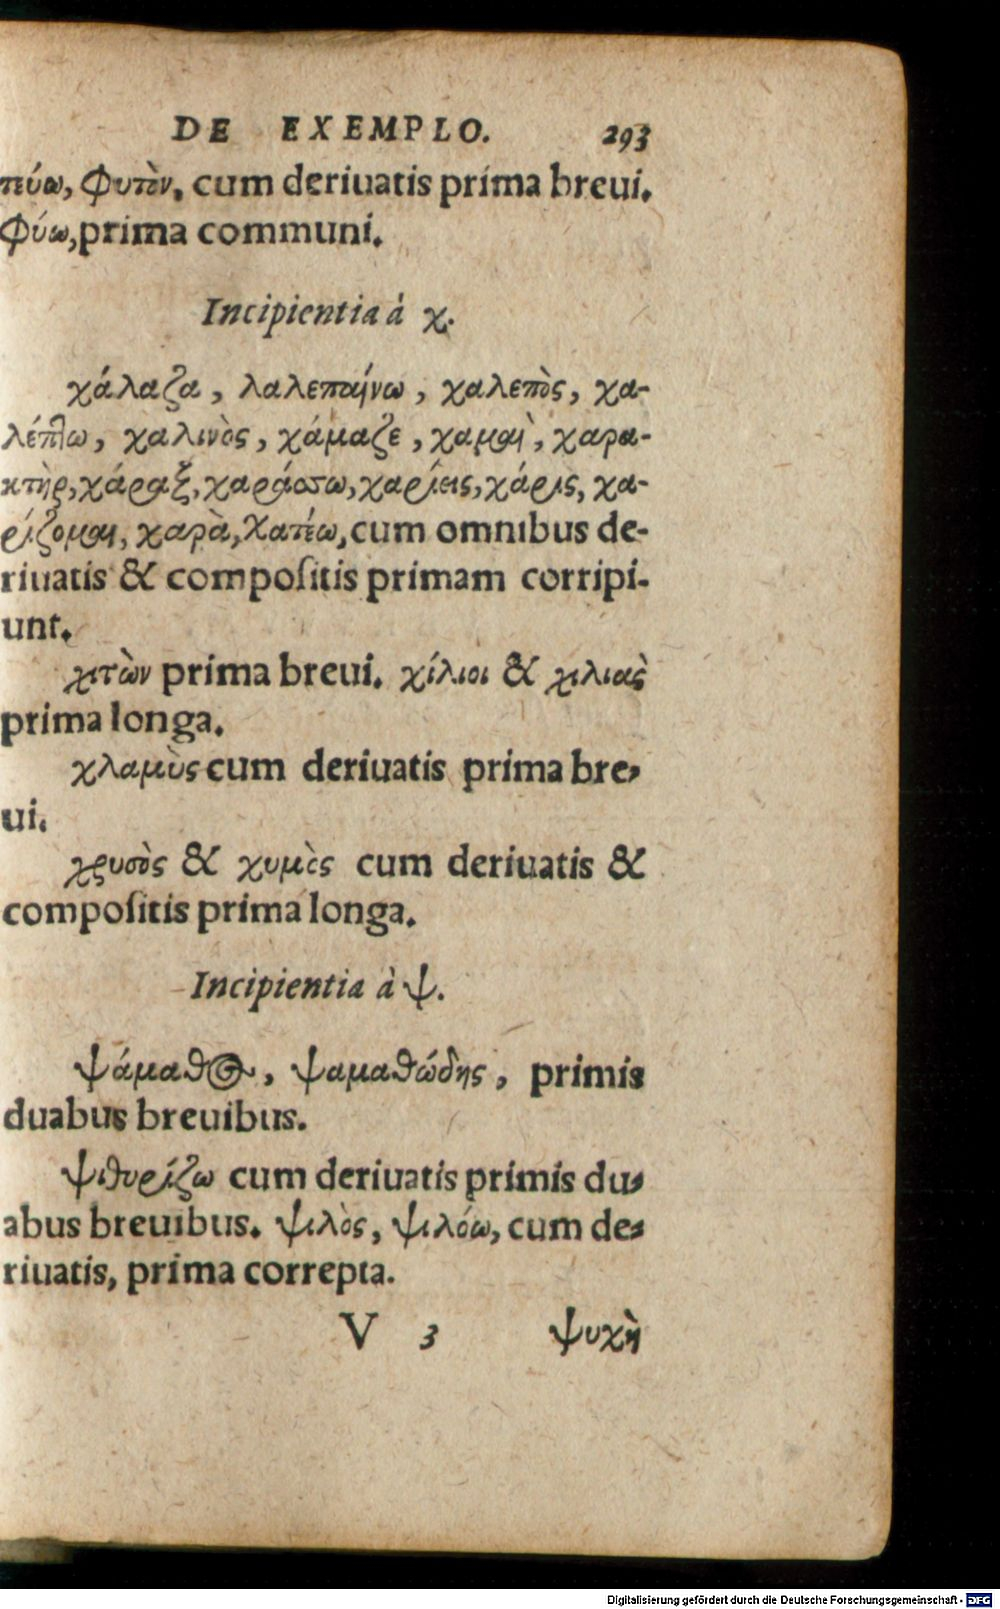 DE EXEMPLO. 293
πεύω, Φυτὸν, cum deriuatis prima breui.
Φύω, prima communi.
Incipientia à χ.
χάλαζα, λαλεπαίνω, χαλεπὸς, χα-
λέπτω, χαλινὸς, χάμαζε, χαμαὶ, χαρα-
κτὴρ, χάραξ, χαράσσω, χαρίεις, χάρις, χα-
ρίζομαι, χαρὰ, Χατέω, cum omnibus de-
riuatis & compoſitis primam corripi-
unt.
χιτὼν prima breui. χίλιοι & χιλιὰς
prima longa.
χλαμὺς cum deriuatis prima bre-
ui.
χρυσὸς & χυμὸς cum deriuatis &
compoſitis prima longa.
Incipientia à ψ.
ψάμαθος, ψαμαθώδης, primis
duabus breuibus.
ψιθυρίζω cum deriuatis primis du-
abus breuibus. ψιλὸς, ψιλόω, cum de-
riuatis, prima correpta.
V 3 ψυχὴ
Digitalisierung gefördert durch die Deutsche Forschungsgemeinschaft - DFG